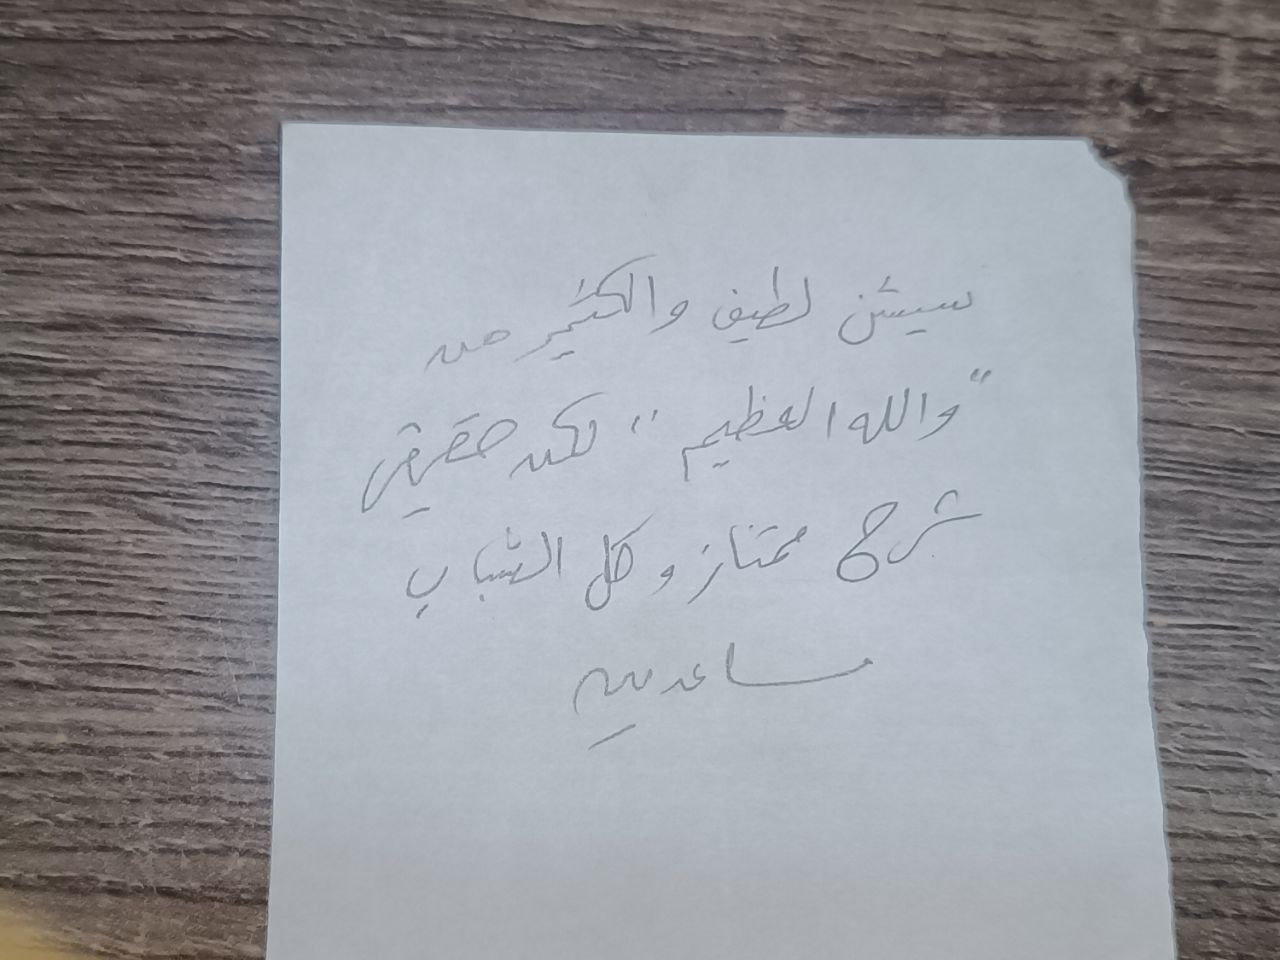 سيشن لطيف والكثير من
"والله العظيم" لكن حقيقي
شرح ممتاز و كل الشباب
ساعدني